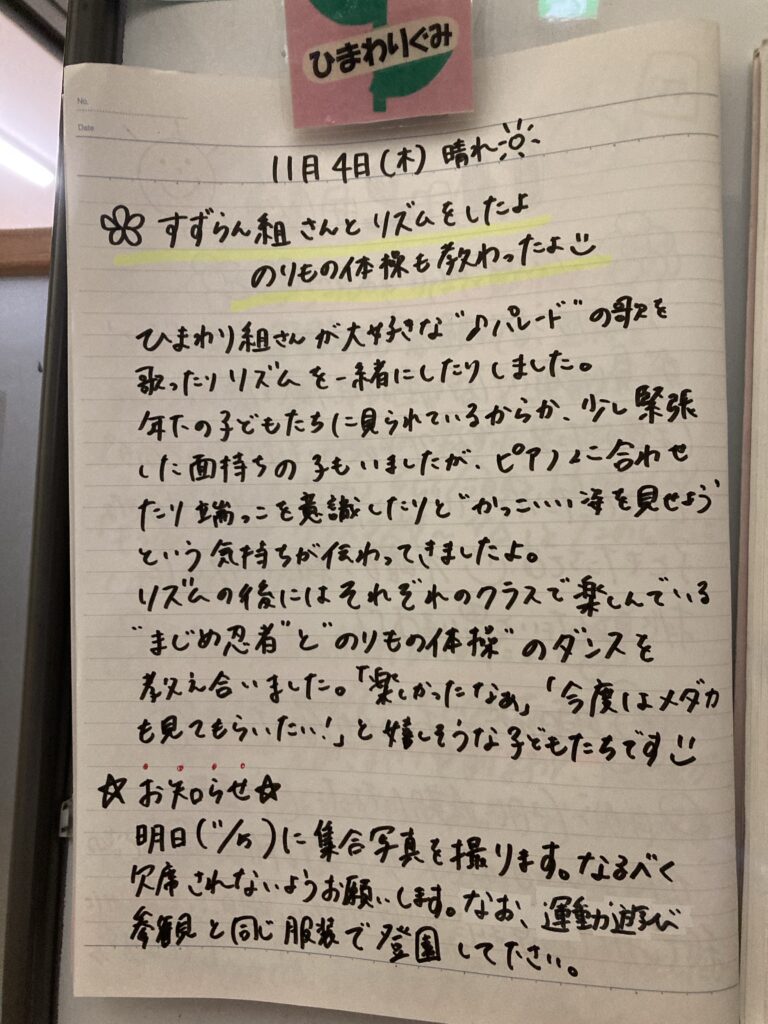 ひまわりぐみ
No.
Date
11月4日(木) 晴れ
すずらん組さんとリズムをしたよ
のりもの体操も教わったよ
ひまわり組さんが大好きな"♪パレード"の歌を
歌ったりリズムを一緒にしたりしました。
年下の子どもたちに見られているからか、少し緊張
した面持ちの子もいましたが、ピアノに合わせ
たり端っこを意識したりと"かっこいい姿を見せよう"
という気持ちが伝わってきましたよ。
リズムの後にはそれぞれのクラスで楽しんでいる
"まじめ忍者"と"のりもの体操"のダンスを
教え合いました。「楽しかったなぁ」「今度はメダカ
も見てもらいたい!」と嬉しそうな子どもたちです
☆お知らせ☆
明日(11/5)に集合写真を撮ります。なるべく
欠席されないようお願いします。なお、運動遊び
参観と同じ服装で登園して下さい。